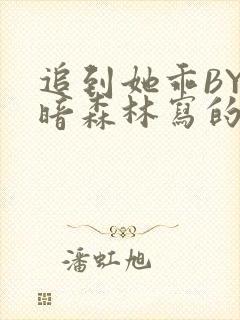 追到她乖BY
暗森林寫的
潘虹旭